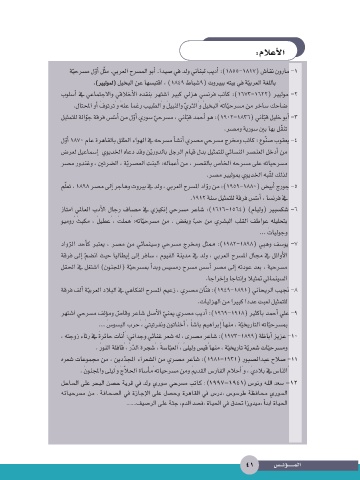 الأعلام:
١- مارون نقاش (١٨١٧-١٨٥٥): أديب لبناني ولد في صيدا. أبو المسرح العربي. مثّل أوّل مسرحيّة
باللغة العربيّة في بيته ببيروت (٩ شباط ١٨٤٩)، اقتبسها عن البخيل (لموليير).
٢- موليير (١٦٢٢-١٦٧٣): كاتب فرنسي هزلي كبير اشتهر بنقده الأخلاقي والاجتماعي في أسلوب
ضاحك ساخر من مسرحيّاته البخيل و الثريّ والنبيل و الطبيب رغما عنه و ترتوف أو المحتال.
٣- أبو خليل القبّاني (١٨٣٦-١٩٠٢): هو أحمد القبّاني، مسرحيّ سوري أوّل من أسّس فرقة جوّالة للتمثيل
تنقّل بها بين سورية ومصر.
٤- يعقوب صنّوع: كاتب ومخرج مسرحي مصري أنشأ مسرحه في الهواء الطلق بالقاهرة عام ١٨٧٠ أوّل
من أدخل العنصر النسائي للتمثيل بدل قيام الرجل بالدورين وقد دعاه الخديوي إسماعيل لعرض
مسرحياته على مسرحه الخاص بالقصر، من أعماله: البنت العصريّة، الضرتين، وغندور مصر
لذلك لقّبه الخديوي بموليير مصر.
٥- جورج أبيض (١٨٨٠-١٩٥٩): من روّاد المسرح العربي، ولد في بيروت وهاجر إلى مصر ١٨٩٨، تعلّم
في فرنسا، أسّس فرقة للتمثيل سنة ١٩١٢.
٦- شكسبير (وليام) (١٥٦٤-١٦١٦): شاعر مسرحي إنكليزي في مصاف رجال الأدب العالمي امتاز
بتحليله عواطف القلب البشري من حبّ وبغض، من مسرحيّاته: هملت، عطيل، مكبث روميو
وجولييت ...
٧- يوسف وهبي (١٨٩٨-١٩٨٢): ممثل ومخرج مسرحي وسينمائي من مصر، يعتبر كأحد الروّاد
الأوائل في مجال المسرح العربي، ولد في مدينة الفيوم، سافر إلى إيطاليا حيث انضمّ إلى فرقة
مسرحية، بعد عودته إلى مصر أسس مسرح رمسيس وبدأ بمسرحيّة (المجنون) اشتغل في الحقل
السينمائي تمثيلا وإنتاجا وإخراجا.
٨- نجيب الريحاني (١٨٩١-١٩٤٩): فنّان مصري، زعيم المسرح الفكاهي في البلاد العربيّة ألف فرقة
للتمثيل لعبت عددا كبيرا من الهزليات.
٩- علي أحمد باكثير (١٩١٨-١٩٦٩): أديب مصري يمنيّ الأصل شاعر وقاصّ ومؤلف مسرحي اشتهر
بمسرحيّاته التاريخيّة، منها إبراهيم باشا، أخناتون ونفرتيتي، حرب البسوس ...
١٠- عزيز أباظة (١٨٩٩-١٩٧٣): شاعر مصري، له شعر غنائي وجداني: أنات حائرة في رثاء زوجته،
ومسرحيّات شعريّة تاريخيّة، منها قيس ولبنى، العبّاسة، شجرة الدّر، قافلة النور.
١١- صلاح عبد الصبور (١٩٣١-١٩٨١): شاعر مصري من الشعراء المجدّدين، من مجموعات شعره
الناس في بلادي، و أحلام الفارس القديم ومن مسرحياته مأساة الحلاّج و ليلى والمجنون.
١٢- سعد الله ونوس (١٩٤١-١٩٩٧): كاتب مسرحي سوري ولد في قرية حصن البحر على الساحل
السوري محافظة طرسوس، درس في القاهرة وحصل على الإجازة في الصحافة. من مسرحياته
الحياة أبدا، ميدوزا تحدق في الحياة، فصد الدم، جثة على الرصيف....
المـــؤنـــس
٤١